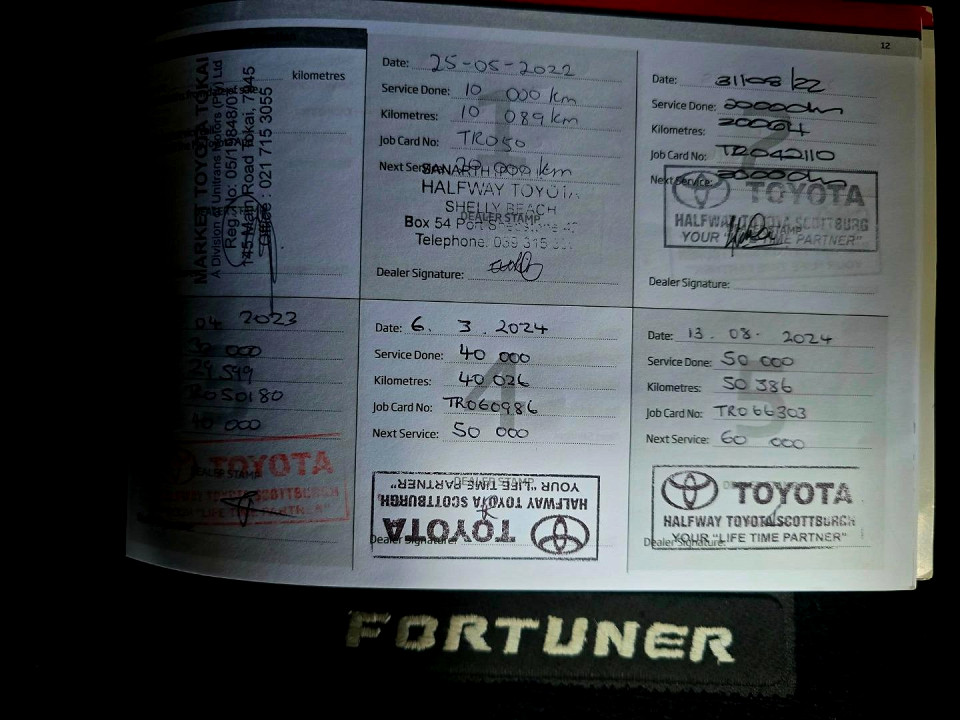 12
kilometres
MARKET TOYOTA TOKAI
A Division of Unitrans Motors (Pty) Ltd
Reg. No: 05/19848/07
145 Main Road Tokai, 7945
Office : 021 715 3055
Date: 25-05-2022
Service Done: 10 000 km
Kilometres: 10 089 km
Job Card No: TR050
Next Service: 20 000 km
HALFWAY TOYOTA
SHELLY BEACH
DEALER STAMP
Box 54 Port
Telephone: 039 315
Dealer Signature:
1
Date: 31/08/22
Service Done:
Kilometres: 20064
Job Card No: TR042110
Next Service:
TOYOTA
HALFWAY TOYOTA SCOTTBURG
YOUR "LIFE TIME PARTNER"
Dealer Signature:
2
04 2023
000
29 599
50180
000
DEALER STAMP
TOYOTA
TOYOTA SCOTTBURGH
"LIFE TIME PARTNER"
Date: 6. 3. 2024
Service Done: 40 000
Kilometres: 40 026
Job Card No: TR060986
Next Service: 50 000
4
DEALER STAMP
TOYOTA
HALFWAY TOYOTA SCOTTBURGH,
YOUR "LIFE TIME PARTNER"
Dealer Signature:
Date: 13. 08. 2024
Service Done: 50 000
Kilometres: 50 386
Job Card No: TR066303
Next Service: 60 000
5
TOYOTA
HALFWAY TOYOTA SCOTTBURGH
YOUR "LIFE TIME PARTNER"
Dealer Signature:
FORTUNER